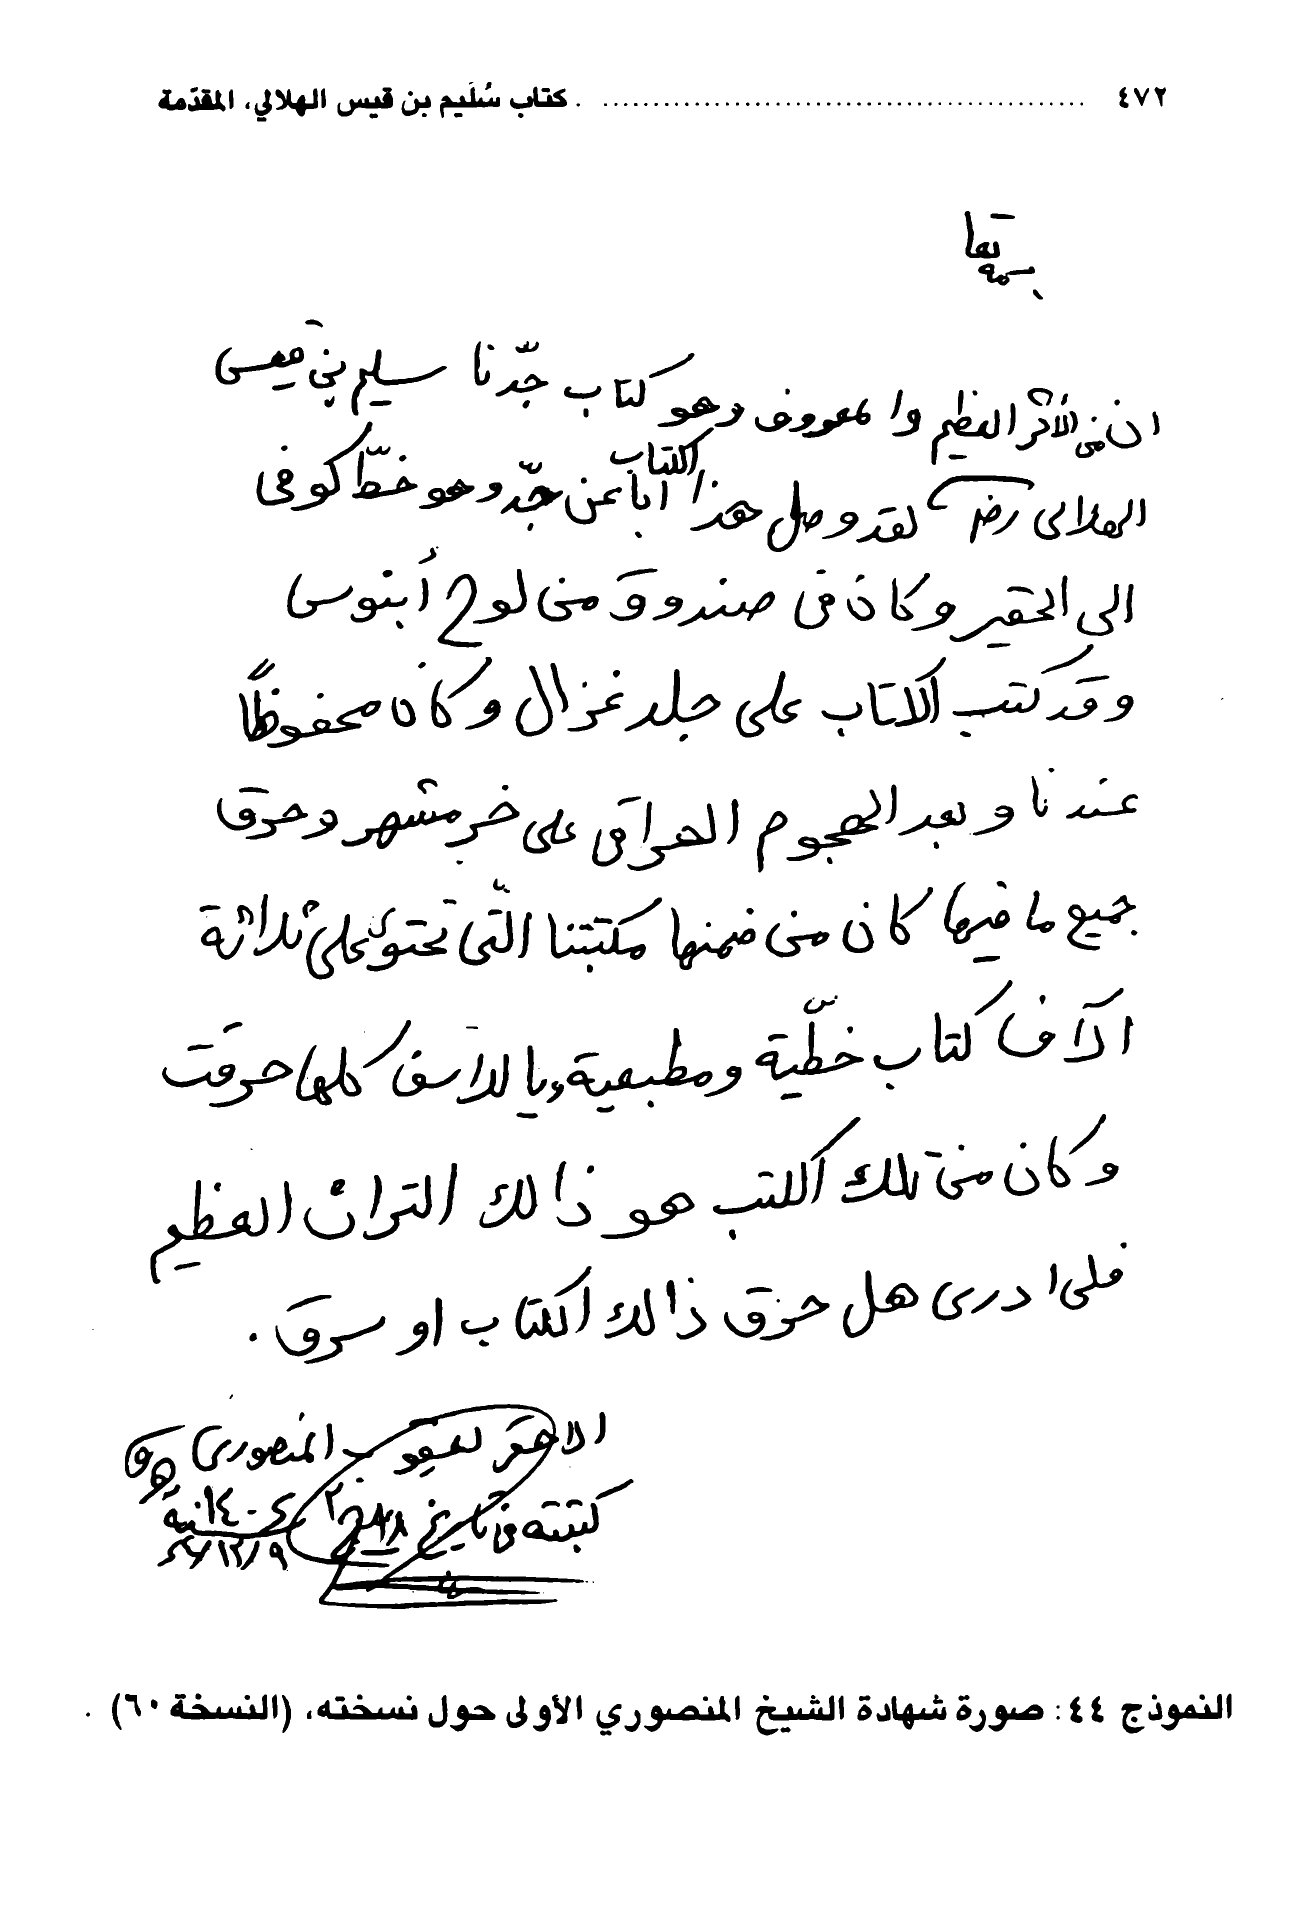 ٤٧٢ ........................ كتاب سُلَيم بن قيس الهلالي، المقدّمة
بسمه تعا
ان من الأثر العظيم والمعروف وهو كتاب جدّنا سليم بن قيس
الهلالى رضه لقد وصل هذا الكتاب اباً عن جدّ وهو خطّ كوفى
الى الحقير وكان فى صندوق من لوح أبنوسى
وقد كتب الكتاب على جلد غزال وكان محفوظاً
عندنا وبعد الهجوم العراقى على خرمشهر وحرق
جميع ما فيها كان من ضمنها مكتبتنا الّتى تحتوى على ثلاثة
الآف كتاب خطّية ومطبعية، يا للأسف كلها حرقت
وكان من تلك الكتب هو ذالك التراث العظيم
فلا ادرى هل حرق ذالك الكتاب او سرق.
الاحقر يعقوب المنصورى
كتبته فى تاريخ
النموذج ٤٤: صورة شهادة الشيخ المنصوري الأولى حول نسخته، (النسخة ٦٠).